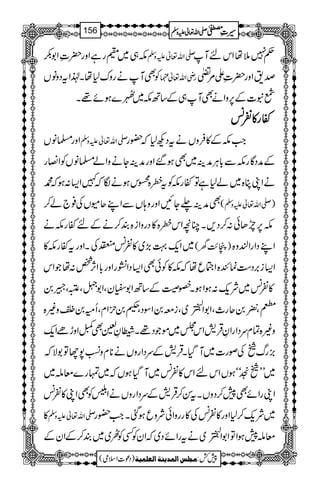 سیرتِ مصطفیٰ صلی اللہ تعالیٰ علیہ وسلم 156
حکم نہیں ملا تھا اس لئے آپ صلی اللہ تعالیٰ علیہ وسلم مکہ ہی میں مقیم رہے اور حضرت ابوبکر
صدیق اور حضرت علی مرتضیٰ رضی اللہ تعالیٰ عنہما کو بھی آپ نے روک لیا تھا۔ لہٰذا یہ دونوں
شمع نبوت کے پروانے بھی آپ ہی کے ساتھ مکہ میں ٹھہرے ہوئے تھے۔
کفار کانفرنس
جب مکہ کے کافروں نے یہ دیکھ لیا کہ حضور صلی اللہ تعالیٰ علیہ وسلم اور مسلمانوں
کے مددگار مکہ سے باہر مدینہ میں بھی ہو گئے اور مدینہ جانے والے مسلمانوں کو انصار
نے اپنی پناہ میں لے لیا ہے تو کفار مکہ کو یہ خطرہ محسوس ہونے لگا کہ کہیں ایسا نہ ہو کہ محمد
(صلی اللہ تعالیٰ علیہ وسلم) بھی مدینہ چلے جائیں اور وہاں سے اپنے حامیوں کی فوج لے کر
مکہ پر چڑھائی نہ کر دیں۔ چنانچہ اس خطرہ کا دروازہ بند کرنے کے لئے کفار مکہ نے
اپنے دارالندوہ (پنچائت گھر) میں ایک بہت بڑی کانفرنس منعقد کی۔ اور یہ کفار مکہ کا
ایسا زبردست نمائندہ اجتماع تھا کہ مکہ کا کوئی بھی ایسا دانشور اور بااثر شخص نہ تھا جو اس
کانفرنس میں شریک نہ ہوا ہو۔ خصوصیت کے ساتھ ابوسفیان، ابوجہل، عتبہ، جبیر بن
مطعم، نضر بن حارث، ابوالبختری، زمعہ بن اسود، حکیم بن حزام، اُمیہ بن خلف وغیرہ
وغیرہ تمام سردارانِ قریش اس مجلس میں موجود تھے۔ شیطانِ لعین بھی کمبل اوڑھے ایک
بزرگ شیخ کی صورت میں آ گیا۔ قریش کے سرداروں نے نام و نسب پوچھا تو بولا کہ
میں ”شیخ نجد“ ہوں اس لئے اس کانفرنس میں آ گیا ہوں کہ میں تمہارے معاملہ میں
اپنی رائے بھی پیش کر دوں۔ یہ سن کر قریش کے سرداروں نے ابلیس کو بھی اپنی کانفرنس
میں شریک کر لیا اور کانفرنس کی کارروائی شروع ہو گئی۔ جب حضور صلی اللہ تعالیٰ علیہ وسلم کا
معاملہ پیش ہوا تو ابوالبختری نے یہ رائے دی کہ ان کو کسی کوٹھری میں بند کر کے ان کے
پیش کش: مجلس المدینۃ العلمیۃ (دعوتِ اسلامی)